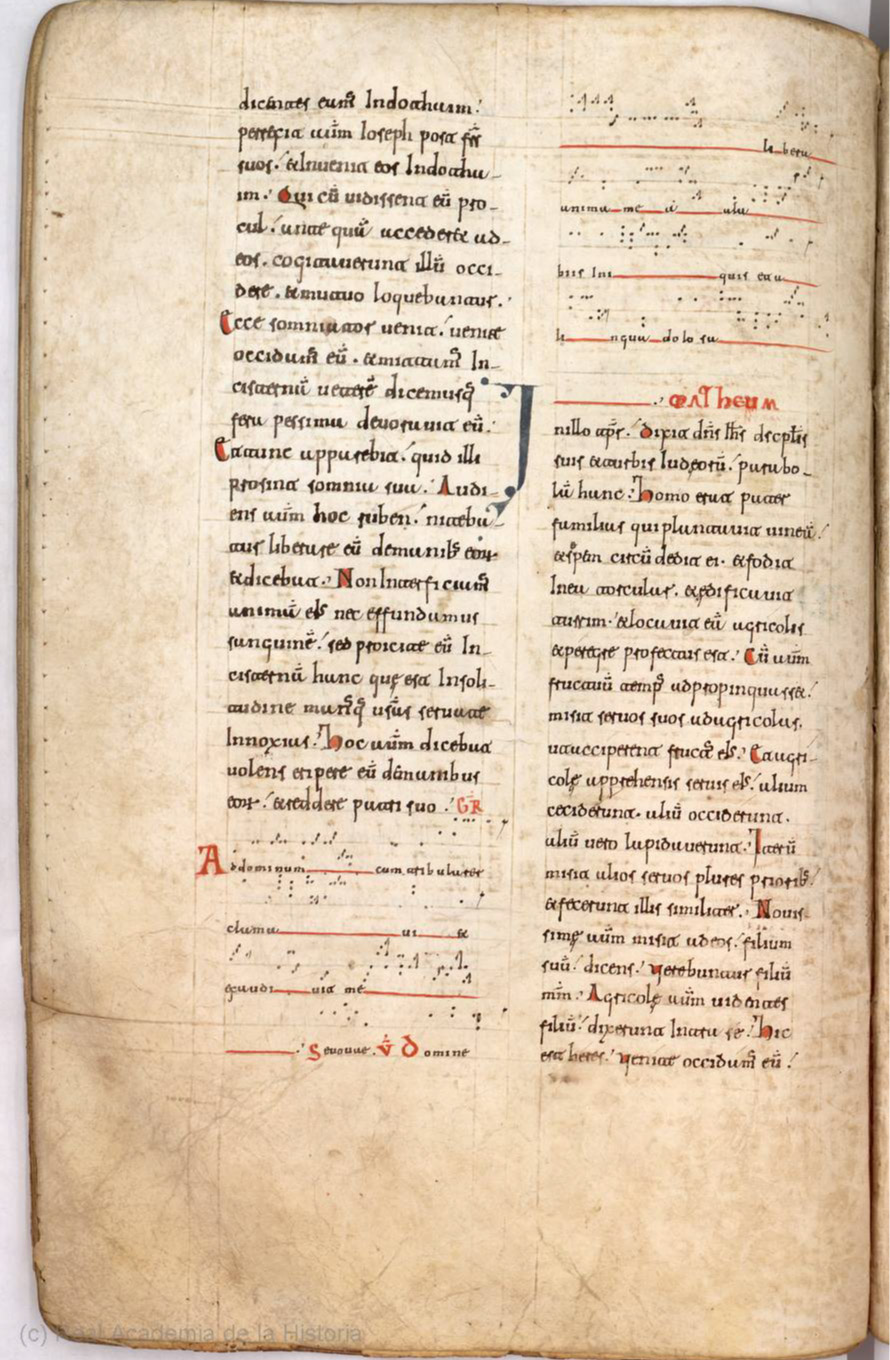 dicentes eam̅ Indothaim:
perrexit aūm Ioseph post fr̅s
suos. & Inuenit eos Indotha-
im. Qui cū uidissent eū pro-
cul. antequā accederet ad-
eos. cogitauerunt illū occi-
dere. & mutuo loquebantur.
Ecce somniator uenit. uenite
occidam̅ eū. & mittam̅ In-
cisternā ueterē dicemusq̅
fera pessima deuorauit eū.
Et tunc apparebit. quid illi
prosint somnia sua. Audi-
ens aūm hoc ruben. niteba-
tur liberare eū demanib̅s eor
& dicebat. Non Interficiam̅
animā ei̅s nec effundamus
sanguinē. sed proicite eū In-
cisternā hanc quę est Insoli-
tudine manusq̅ ur̅as seruate
Innoxias. Hoc aūm dicebat
uolens eripere eū demanibus
eor. & reddere patri suo. GR
Addominum cum tribularer
clama ui &
exaudi uit me
Seuoue. V̅ Domine
libera
anima me a ala
biis Ini quis et a
li ngua dolosa
MATHEUM
Inillo tp̅r. Dixit dn̅s ih̅s discpl̅is
suis & turbis Iudeorū. parabo-
lā hanc. Homo erat pater
familias qui plantauit uineā.
& sępem circū dedit ei. & fodit
Inea torcular. & ędificauit
turrim. & locauit eā agricolis
& peregre profectus est. Cū aūm
fructuū temp̅s adpropinquasset.
misit seruos suos ad agricolas.
ut acciperent fruct̅ ei̅s. Et agri-
colę apprehensis seruis ei̅s. alium
ceciderunt. aliū occiderunt.
aliū uero lapidauerunt. Iterū
misit alios seruos plures priorib̅s.
& fecerunt illis similiter. Nouis-
simę aūm misit ad eos. filium
suū. dicens. Verebuntur filiū
m̅m. Agricolę aūm uidentes
filiū. dixerunt Intra se. Hic
est heres. Venite occidam̅ eū.
(c) Real Academia de la Historia